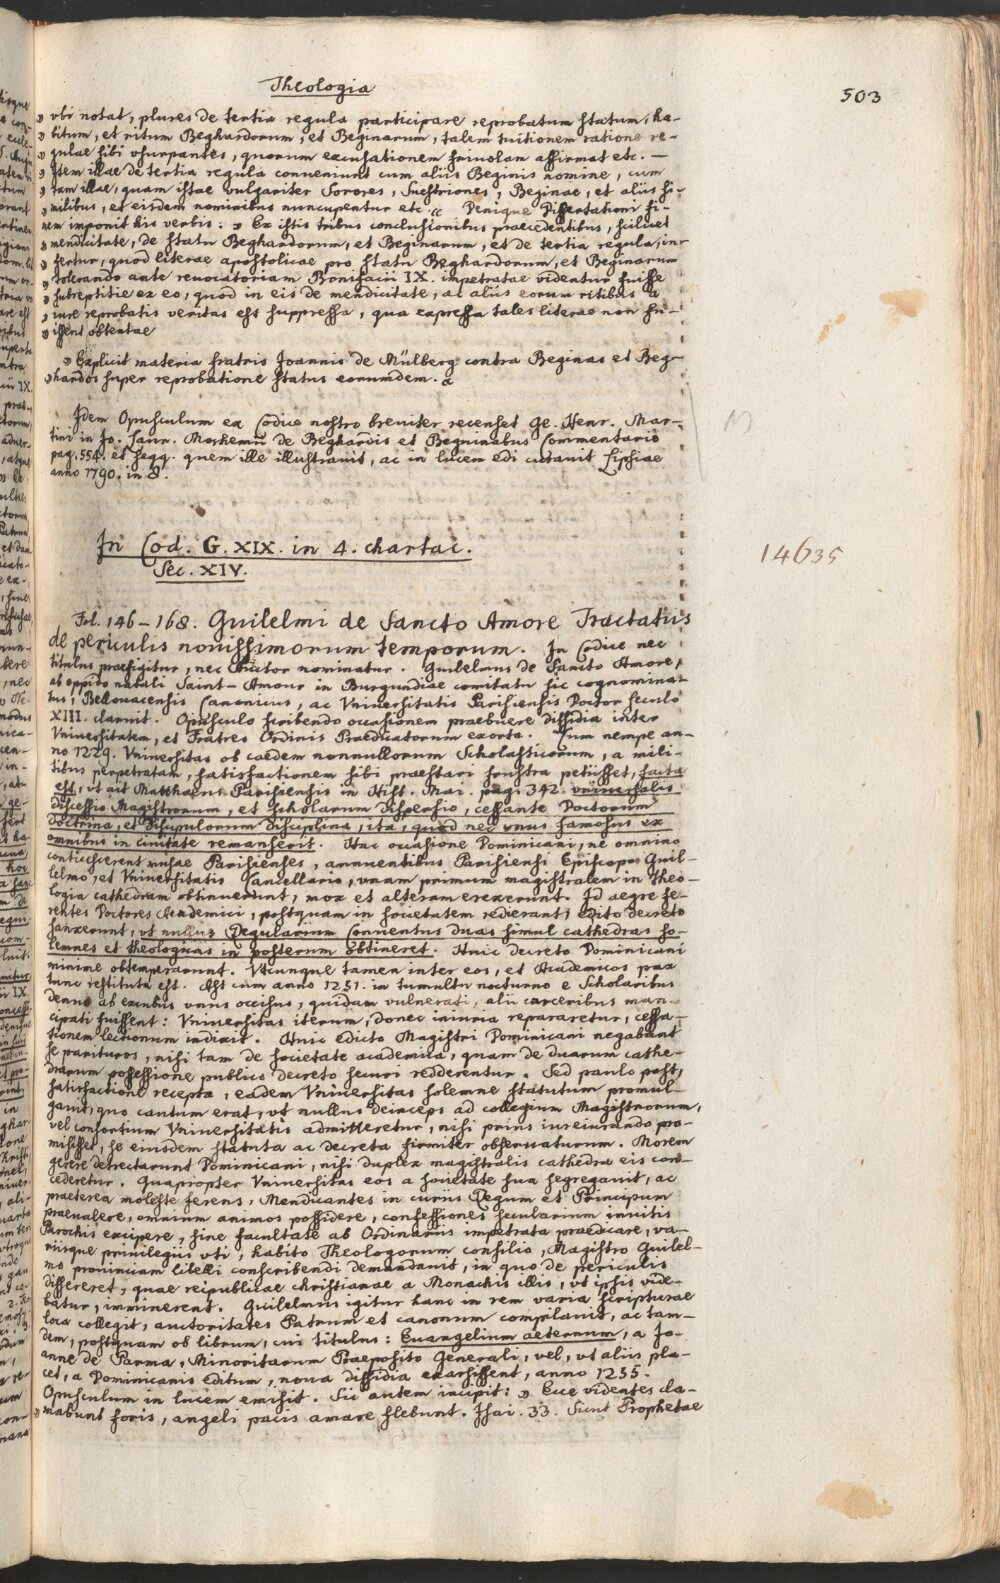 Theologia
503
» vbi notat, plures de tertia regula participare reprobatum statum, ha-
» bitum, et ritum Beghardorum, et Beginarum, talem tuitionem ratione re-
» gulae sibi vsurpantes, quorum excusationem friuolam affirmat etc. —
» Item illae de tertia regula conueniunt cum aliis Beginis nomine, cum
» tam illae, quam istae vulgariter Sorores, Suestriones, Beginae, et aliis si-
» milibus, et eisdem nominibus nuncupentur etc. « Denique Dissertationi fi-
nem imponit his verbis: » Ex istis tribus conclusionibus praecedentibus, scilicet
» mendicitate, de statu Beghardorum, et Beginarum, et de tertia regula, in-
» fertur, quod literae apostolicae pro statu Beghardorum, et Beginarum
» tolerando ante reuocatoriam Bonifacii IX. impetratae videntur fuisse
» subreptitie ex eo, quod in eis de mendicitate, ac aliis eorum ritibus a
» iure reprobatis veritas est suppressa, qua expressa tales literae non fu-
» issent obtentae
» Explicit materia fratris Joannis de Mülberg contra Beginas et Beg-
» hardos super reprobatione status eorumdem. «
Idem Opusculum ex Codice nostro breuiter recenset Ge. Henr. Mar-
tini in Jo. Laur. Moshemii de Beghardis et Beguinabus Commentario
pag. 554. et seqq. quem ille illustrauit, ac in lucem edi curauit Lipsiae
anno 1790. in 8.
In Cod. G. XIX. in 4. chartac.
Sec. XIV.
14635
Fol. 146–168. Guilelmi de Sancto Amore Tractatus
de periculis nouissimorum temporum. In Codice nec
titulus praefigitur, nec Auctor nominatur. Guilelmus de Sancto Amore,
ab oppido natali Saint-Amour in Burgundiae comitatu sic cognomina-
tus, Bellouacensis Canonicus, ac Vniuersitatis Parisiensis Doctor seculo
XIII. claruit. Opusculo scribendo occasionem praebuere dissidia inter
Vniuersitatem, et Fratres Ordinis Praedicatorum exorta. Cum nempe an-
no 1229. Vniuersitas ob caedem nonnullorum Scholasticorum, a mili-
tibus perpetratam, satisfactionem sibi praestari frustra petiisset, facta
est, vt ait Matthaeus Parisiensis in Hist. Mai. pag. 342. vniuersalis
discessio Magistrorum, et scholarum dispersio, cessante Doctorum
doctrina, et discipulorum disciplina, ita, quod nec vnus famosus ex
omnibus in ciuitate remanserit. Hac occasione Dominicani, ne omnino
conticescerent musae Parisienses, annuentibus Parisiensi Episcopo Guil-
lelmo, et Vniuersitatis Cancellario, vnam primum magistralem in Theo-
logia cathedram obtinuerunt, mox et alteram erexerunt. Id aegre fe-
rentes Doctores Academici, postquam in societatem redierant, edito decreto
sanxerunt, vt nullus Regularium Conuentus duas simul cathedras so-
lemnes et theologicas in posterum obtineret. Huic decreto Dominicani
minime obtemperarunt. Vtcunque tamen inter eos, et Academicos pax
tunc restituta est. Ast cum anno 1251. in tumultu nocturno e Scholaribus
denuo ab excubiis vnus occisus, quidam vulnerati, alii carceribus man-
cipati fuissent: Vniuersitas iterum, donec iniuria repararetur, cessa-
tionem lectionum indixit. Huic edicto Magistri Dominicani negabant
se parituros, nisi tam de societate academica, quam de duarum cathe-
drarum possessione publico decreto securi redderentur. Sed paulo post,
satisfactione recepta, eadem Vniuersitas solemne statutum promul-
gauit, quo cautum erat, vt nullus deinceps ad collegium Magistrorum,
vel consortium Vniuersitatis admitteretur, nisi prius iureiurando pro-
misisset, se eiusdem statuta ac decreta firmiter obseruaturum. Morem
gerere detrectarunt Dominicani, nisi duplex magistralis cathedra eis con-
cederetur. Quapropter Vniuersitas eos a societate sua segregauit, ac
praeterea moleste ferens, Mendicantes in curiis Regum et Principum
praeualere, omnium animos possidere, confessiones secularium inuitis
Parochis excipere, sine facultate ab Ordinariis impetrata praedicare, va-
riisque priuilegiis vti, habito Theologorum consilio, Magistro Guilel-
mo prouinciam libelli conscribendi demandauit, in quo de periculis
dissereret, quae reipublicae christianae a Monachis illis, vt ipsis vide-
batur, imminerent. Guilelmus igitur hanc in rem varia scripturae
loca collegit, auctoritates Patrum et canonum compilauit, ac tan-
dem, postquam ob librum, cui titulus: Euangelium aeternum, a Jo-
anne de Parma, Minoritarum Praeposito Generali, vel, vt aliis pla-
cet, a Dominicanis editum, noua dissidia exarsissent, anno 1255.
Opusculum in lucem emisit. Sic autem incipit: » Ecce videntes cla-
» mabunt foris, angeli pacis amare flebunt. Isai. 33. Sicut Prophetae